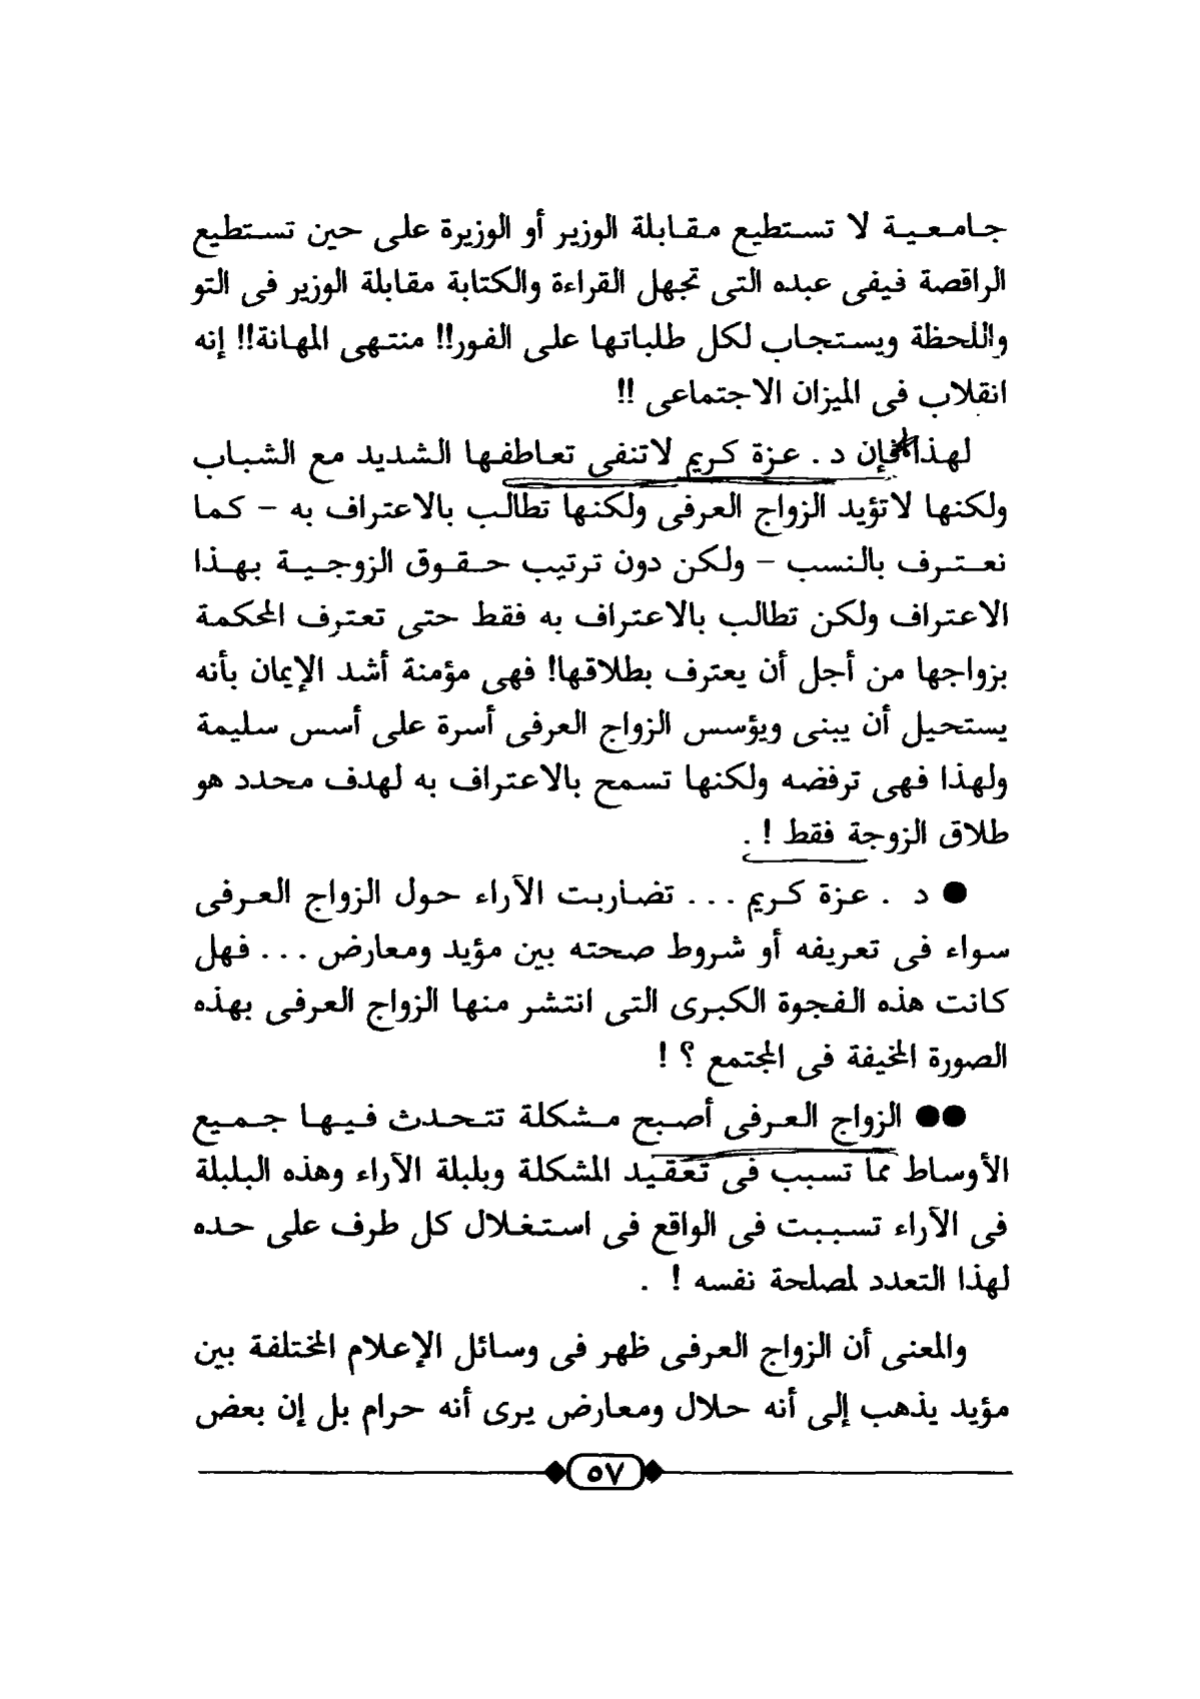 جامعية لا تستطيع مقابلة الوزير أو الوزيرة على حين تستطيع
الراقصة فيفى عبده التى تجهل القراءة والكتابة مقابلة الوزير فى التو
واللحظة ويستجاب لكل طلباتها على الفور!! منتهى المهانة!! إنه
انقلاب فى الميزان الاجتماعى !!
لهذا فإن د . عزة كريم لاتنفى تعاطفها الشديد مع الشباب
ولكنها لاتؤيد الزواج العرفى ولكنها تطالب بالاعتراف به – كما
نعترف بالنسب – ولكن دون ترتيب حقوق الزوجية بهذا
الاعتراف ولكن تطالب بالاعتراف به فقط حتى تعترف المحكمة
بزواجها من أجل أن يعترف بطلاقها! فهى مؤمنة أشد الإيمان بأنه
يستحيل أن يبنى ويؤسس الزواج العرفى أسرة على أسس سليمة
ولهذا فهى ترفضه ولكنها تسمح بالاعتراف به لهدف محدد هو
طلاق الزوجة فقط ! .
● د . عزة كريم ... تضاربت الآراء حول الزواج العرفى
سواء فى تعريفه أو شروط صحته بين مؤيد ومعارض ... فهل
كانت هذه الفجوة الكبرى التى انتشر منها الزواج العرفى بهذه
الصورة المخيفة فى المجتمع ؟ !
●● الزواج العرفى أصبح مشكلة تتحدث فيها جميع
الأوساط مما تسبب فى تعقيد المشكلة وبلبلة الآراء وهذه البلبلة
فى الآراء تسببت فى الواقع فى استغلال كل طرف على حده
لهذا التعدد لمصلحة نفسه ! .
والمعنى أن الزواج العرفى ظهر فى وسائل الإعلام المختلفة بين
مؤيد يذهب إلى أنه حلال ومعارض يرى أنه حرام بل إن بعض
٥٧